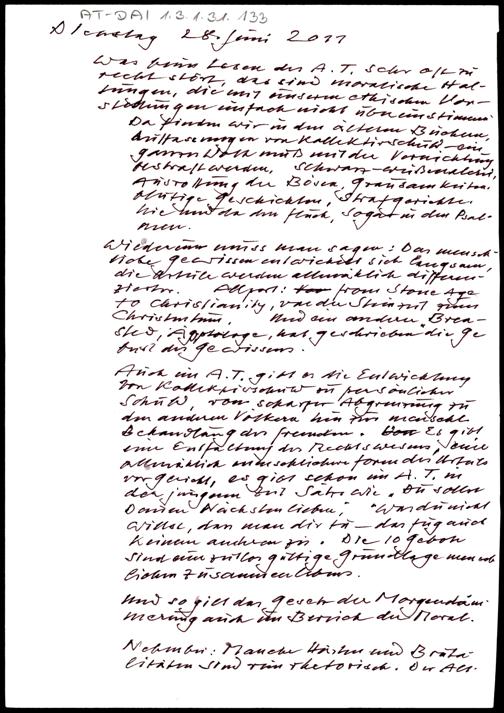 AT-DAI 1.3.1.31.133
Dienstag 28. Juni 2011
Was beim Lesen des A.T. sehr oft zu
recht stört, das sind moralische Hal-
tungen, die mit unseren ethischen Vor-
stellungen einfach nicht übereinstimmen.
Da finden wir in den älteren Büchern,
Auffassungen von Kollektivschuld – ein
ganzes Volk muß mit der Vernichtung
bestraft werden, Schwarz-weißmalerei,
Ausrottung der Bösen, Grausamkeiten.
blutige Geschichten, Strafgerichte.
hie und da den Fluch, sogar in den Psal-
men.
Wiederum muss man sagen: Das mensch-
liche Gewissen entwickelt sich langsam,
die Urteile werden allmählich differen-
zierter. from Stone Age
to Christianity, von der Steinzeit zum
Christentum. Und ein anderer, Brea-
sted, Ägyptologe, hat geschrieben "die Ge
burt des Gewissens.
Auch im A.T. gibt es die Entwicklung
von Kollektivschuld zu persönlicher
Schuld, von scharfer Abgrenzung zu
den anderen Völkern hin zur menschl.
Behandlung des Fremden. Es gibt
eine Entfaltung des Rechtswesens, eine
allmählich menschlichere Form des Urteils
vor Gericht, es gibt schon im A.T. in
der jüngeren Zeit Sätze wie "Du sollst
Deinen Nächsten lieben," "Was du nicht
willst, das man dir tu – das füg auch
keinem anderen zu. Die 10 Gebote
sind eine zeitlos gültige Grundlage mensch
lichen Zusammenlebens.
Und so gilt das Gesetz der Morgendäm
merung auch im Bereich der Moral.
Nebenbei: Manche Härten und Bruta-
litäten sind rein rhetorisch. Der Alt-